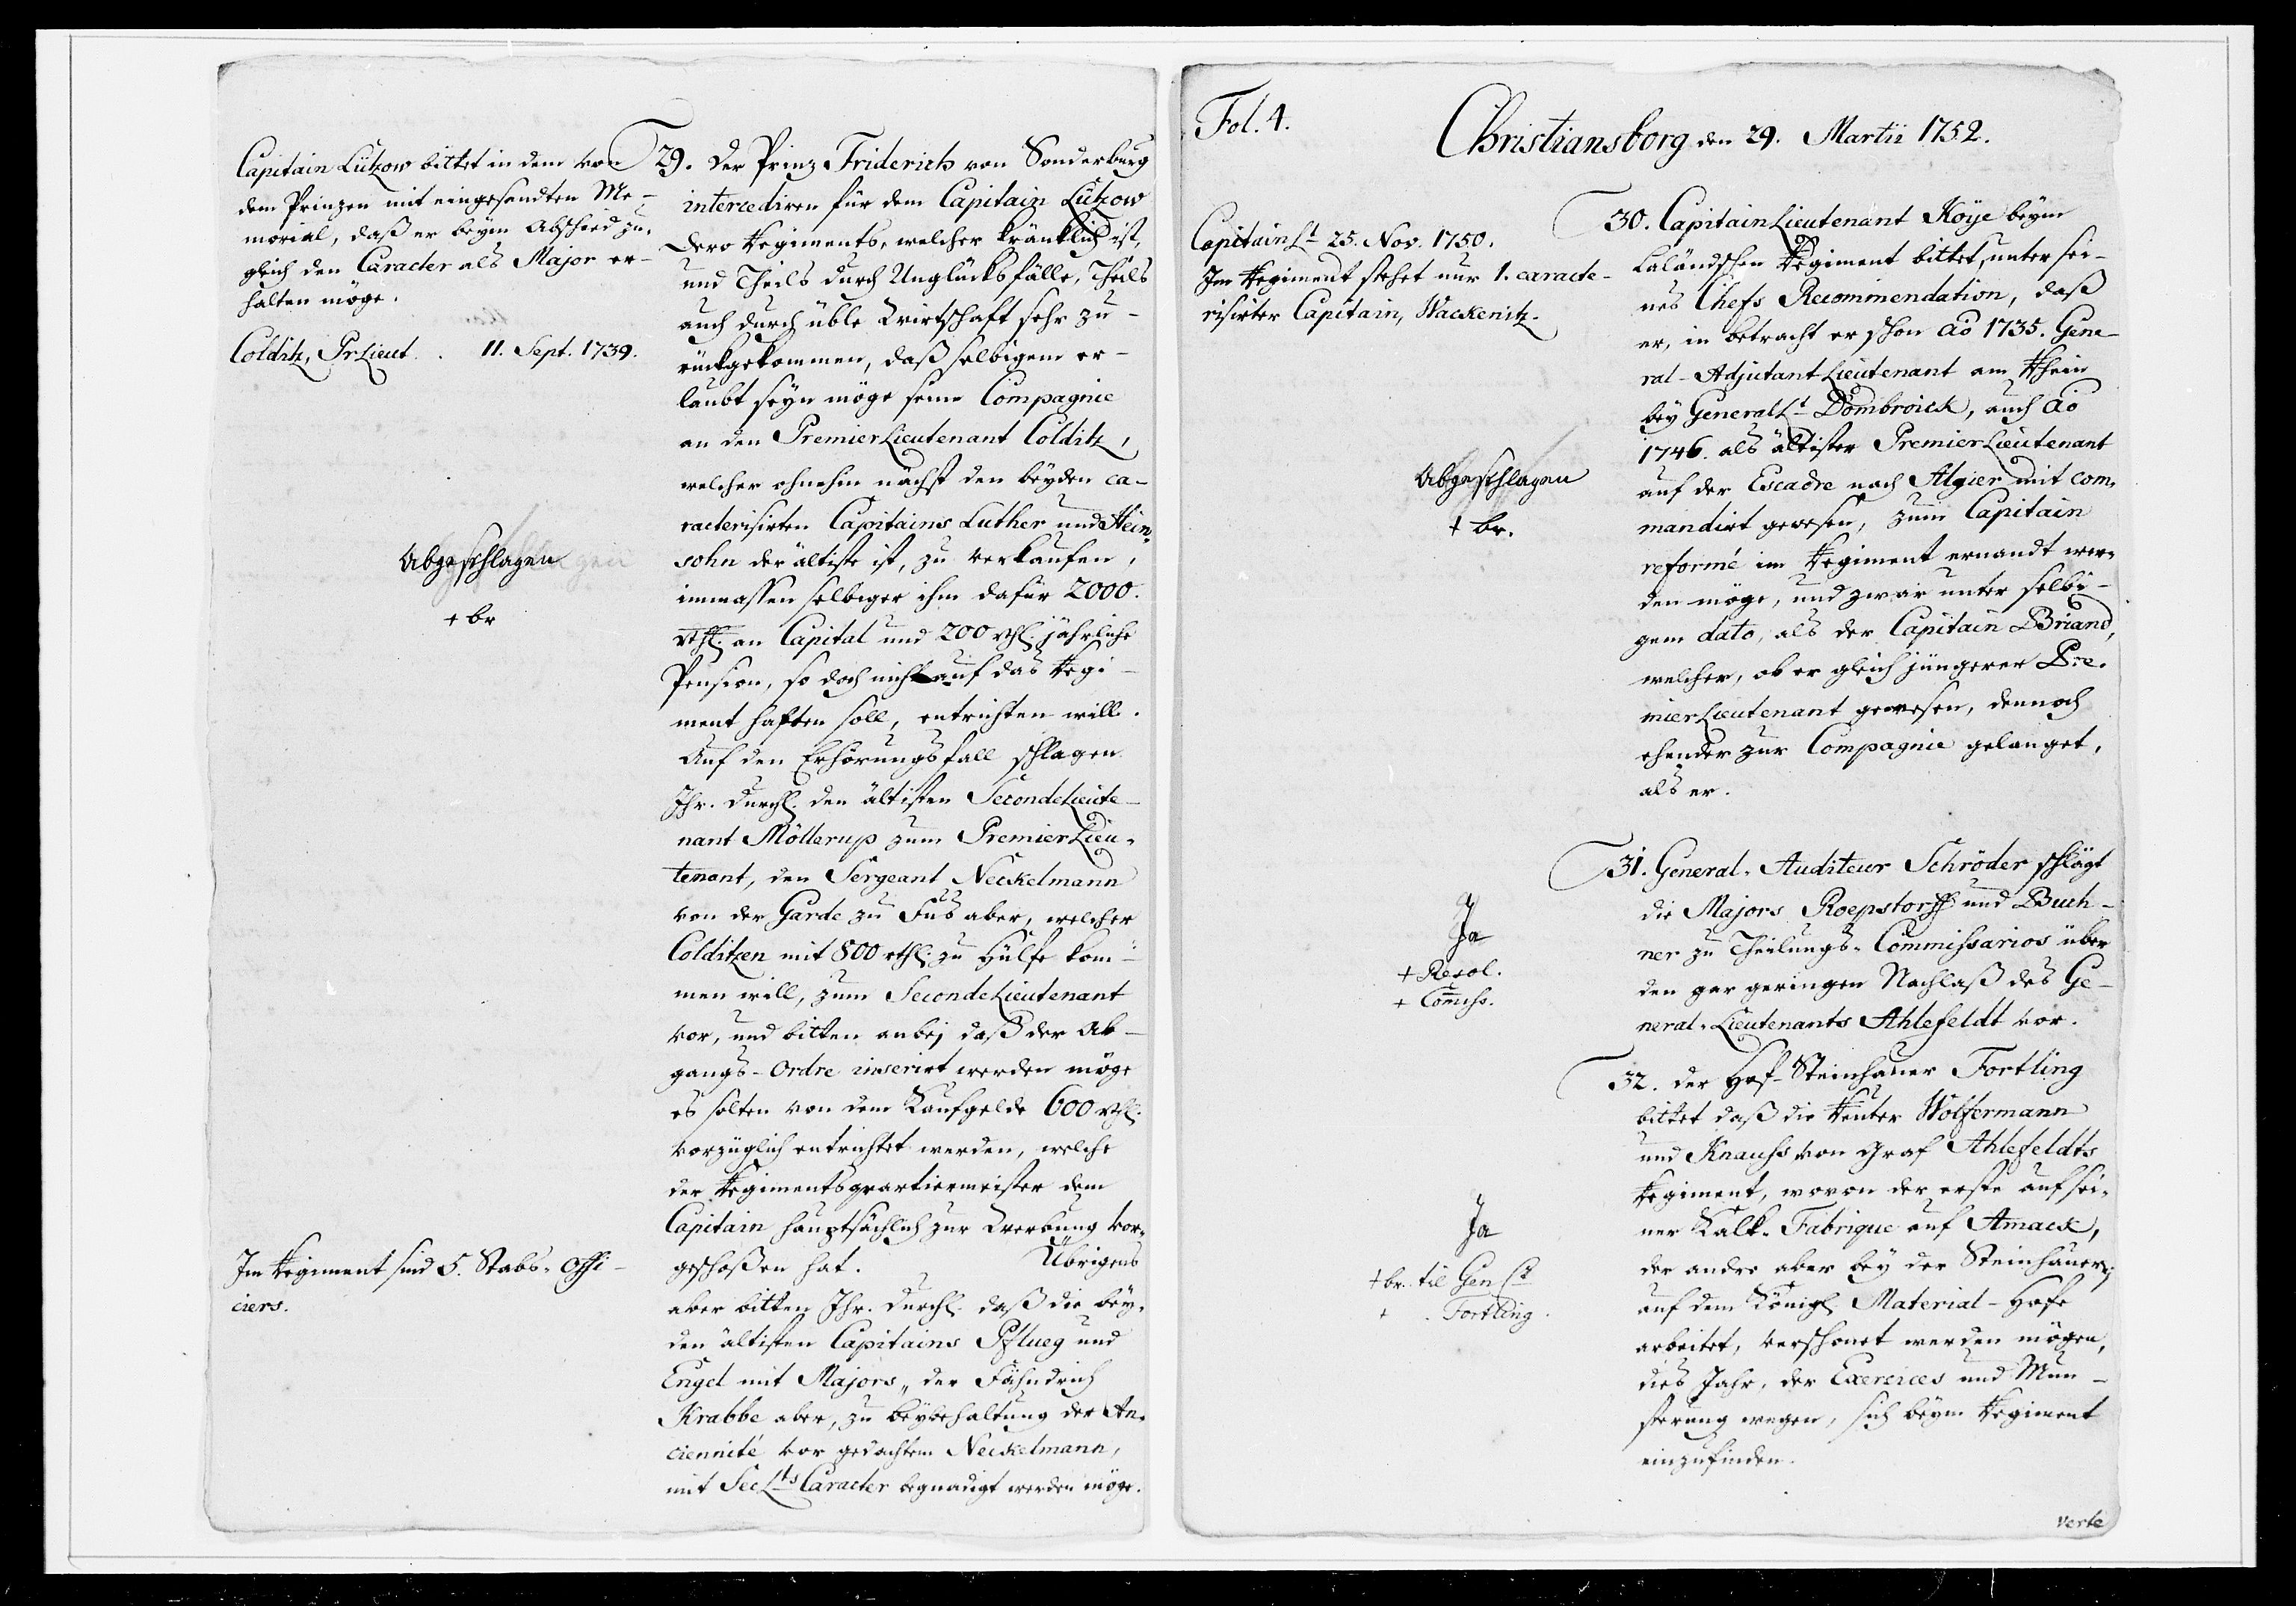 Capitain Lützow bittet in dem von
dem Prinzen mit eingesandten Me-
morial, daß er beym Abschied zu-
gleich den Caracter als Major er-
halten möge.
Colditz, Pr Lieut. . 11. Sept. 1739.
Abgeschlagen
+ br
Im Regiment sind 5. Stabs-Offi-
ciers.
29. Der Prinz Friderich von Sonderburg
intercediren für dem Capitain Lützow
Dero Regiments, welcher kränklich ist,
und Theils durch Unglücksfälle, Theils
auch durch üble Wirtschaft sehr zu-
rückgekommen, daß selbigem er-
laubt seyn möge seine Compagnie
an den PremierLieutenant Colditz,
welcher ohnehin nächst den beyden ca-
racterisirten Capitains Luther und Hein-
sohn der ältiste ist, zu verkaufen,
immassen selbiger ihm dafür 2000.
rthl. an Capital und 200 rthl. jährliche
Pension, so doch nicht auf das Regi-
ment haften soll, entrichten will.
Auf den Erhörungsfall schlagen
Ihr. Durchl. den ältisten SecondeLieute-
nant Möllerup zum PremierLieu-
tenant, den Sergeant Neckelmann
von der Garde zu Fus aber, welcher
Colditzen mit 800 rthl. zu Hülfe kom-
men will, zum SecondeLieutenant
vor, und bitten anbej daß der Ab-
gangs-Ordre inserirt werden möge
es solten von dem Kaufgelde 600 rthl.
vorzüglich entrichtet werden, welche
der Regimentsquartiermeister dem
Capitain hauptsächlich zur Werbung vor-
geschoßen hat. Übrigens
aber bitten Ihr. Durchl. daß die bey-
den ältisten Capitains Pflueg und
Engel mit Majors, der Fähndrich
Krabbe aber, zu beybehaltung der An-
ciennité vor gedachtem Neckelmann,
mit Sec Lts Caracter begnadigt werden möge.
Fol. 4.
Christiansborg den 29. Martii 1752.
Capitain Lt 25. Nov. 1750.
Im Regiment stehet nur 1. caracte-
risirter Capitain, Wackenitz.
Abgeschlagen
+ br.
30. CapitainLieutenant Koÿe beym
Laländschen Regiment bittet, unter sei-
nes Chefs Recommendation, daß
er, in betracht er schon ao 1735. Gene-
ral-AdjutantLieutenant am Rhein
bey GeneralLt Dombroick, auch ao
1746. als ältister PremierLieutenant
auf der Escadre nach Algier mit com-
mandirt gewesen, zum Capitain
reformé im Regiment ernandt wer-
den möge, und zwar unter selbi-
gem dato, als der Capitain Briand,
welcher, ob er gleich jüngerer Pre-
mierLieutenant gewesen, dennoch
ehender zur Compagnie gelanget,
als er.
Ja
+ Resol.
+ Commiss.
31. General-Auditeur Schröder schlägt
die Majors Roepstorff und Buch-
ner zu Theilungs-Commissarios über
den gar geringen Nachlaß des Ge-
neral-Lieutenants Ahlefeldt vor.
Ja
+ br. til Gen Lt
+ . Fortling.
32. Der Hof-Steinhauer Fortling
bittet daß die Reuter Wolfermann
und Knauss von Graf Ahlefeldts
Regiment, wovon der erste auf sei-
ner Kalk-Fabrique auf Amack,
der andre aber bey der Steinhauerej
auf dem Königl. Material-Hofe
arbeitet, verschonet werden mögen,
dies Jahr, der Exercices und Mun-
sterung wegen, sich beym Regiment
einzufinden.
Verte